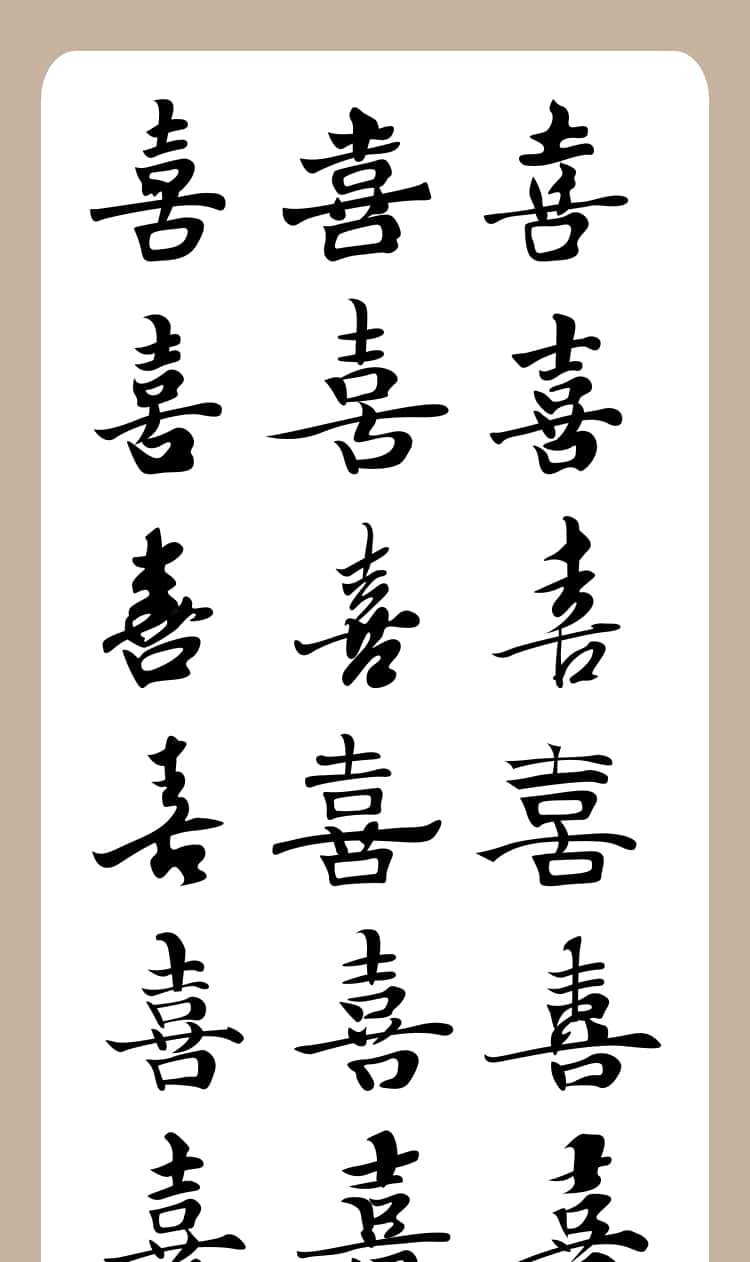 喜 喜 喜
喜 喜 喜
喜 喜 喜
喜 喜 喜
喜 喜 喜
喜 喜 喜